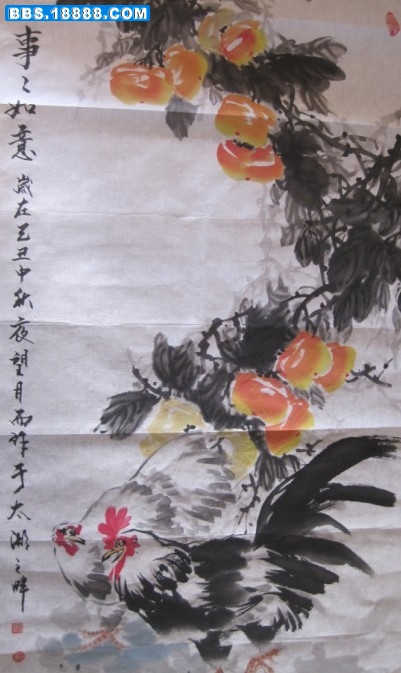 BBS.18888.COM
事〻如意 歲在己丑中秋夜望月而作于太湖之畔